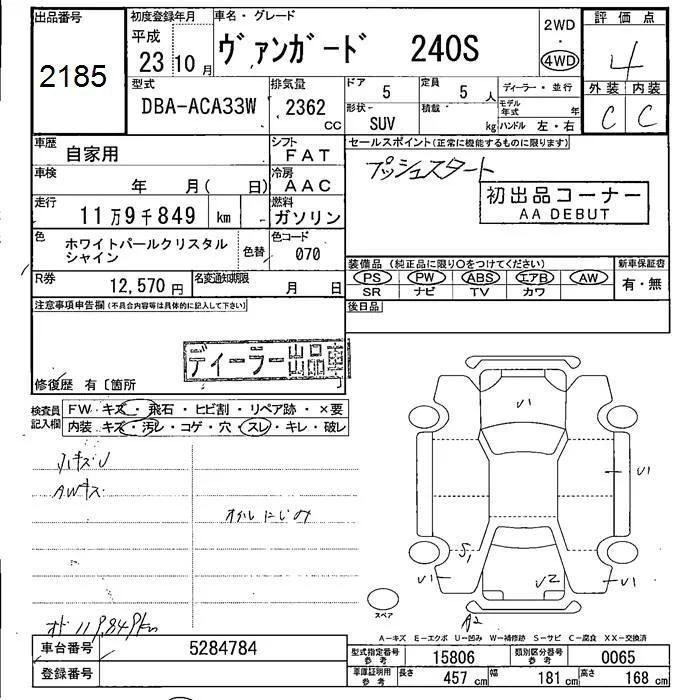 出品番号 初度登録年月 車名・グレード 評価点
2185 平成 23 10 月 ヴァンガード 240S 2WD ・ 4WD 4
型式 排気量 ドア 5 定員 5 人 ディーラー・並行 外装 内装
DBA-ACA33W 2362 cc 形状 SUV 積載 kg モデル年式 年 ハンドル 左・右 C C
車歴 自家用 シフト FAT セールスポイント(正常に機能するものに限ります)
車検 年 月( 日) 冷房 AAC プッシュスタート
走行 11万9千849 km 燃料 ガソリン 初出品コーナー
AA DEBUT
色 ホワイトパールクリスタル シャイン 色替 色コード 070
装備品(純正品に限り○をつけてください) 新車保証書
PS PW ABS エアB AW 有・無
SR ナビ TV カワ
R券 12,570 円 名変通知期限 月 日
注意事項申告欄(不具合内容等は具体的に記入して下さい) 後日品
ディーラー出品車
修復歴 有〔箇所
検査員記入欄 FW キズ・飛石・ヒビ割・リペア跡・×要
内装 キズ・汚レ・コゲ・穴・スレ・キレ・破レ
U1
U1
AWキズ
S1
U1 U2 U1
スペア A2
オド 119,849km
A-キズ E-エクボ U-凹み W-補修跡 S-サビ C-腐食 XX-交換済
車台番号 5284784 型式指定番号 参考 15806 類別区分番号 参考 0065
登録番号 車庫証明用 参考 長さ 457 cm 幅 181 cm 高さ 168 cm